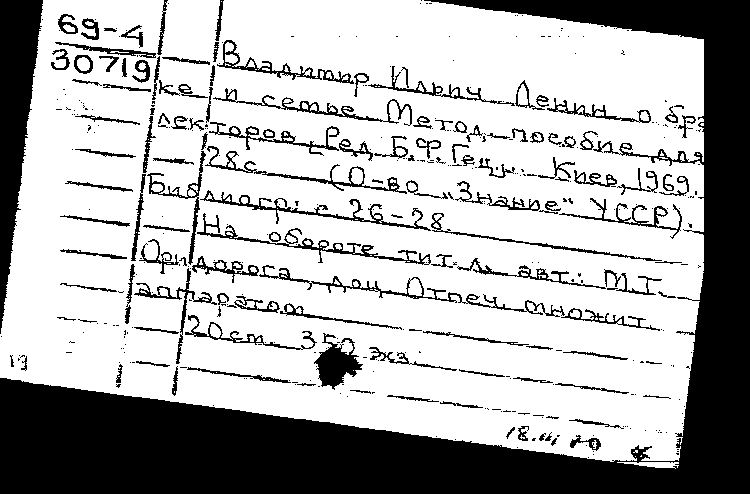 69-4
30719
Владимир Ильич Ленин о бра
ке и семье. Метод. пособие для
лекторов. [Ред. Б.Ф. Гец]. Киев, 1969.
28 с. (О-во „Знание" УССР).
Библиогр: с. 26-28.
На обороте тит. л. авт.: М.Т.
Придорога, доц. Отпеч. множит.
аппаратом
20 см. 350 экз.
19
18.III 70